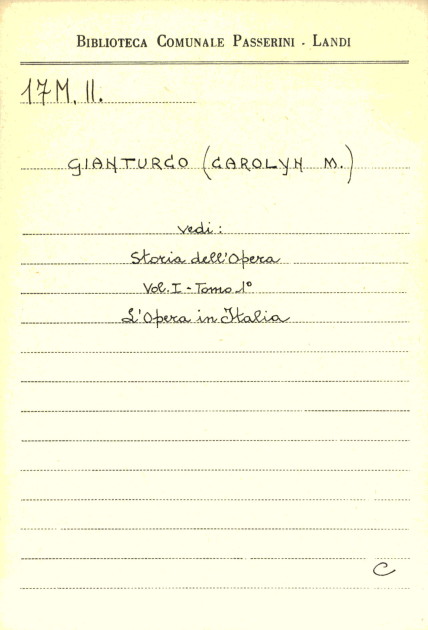 BIBLIOTECA COMUNALE PASSERINI - LANDI
17M. II.
GIANTURCO (CAROLYN M.)
vedi:
Storia dell'Opera
Vol. I - Tomo 1°
L'Opera in Italia
C